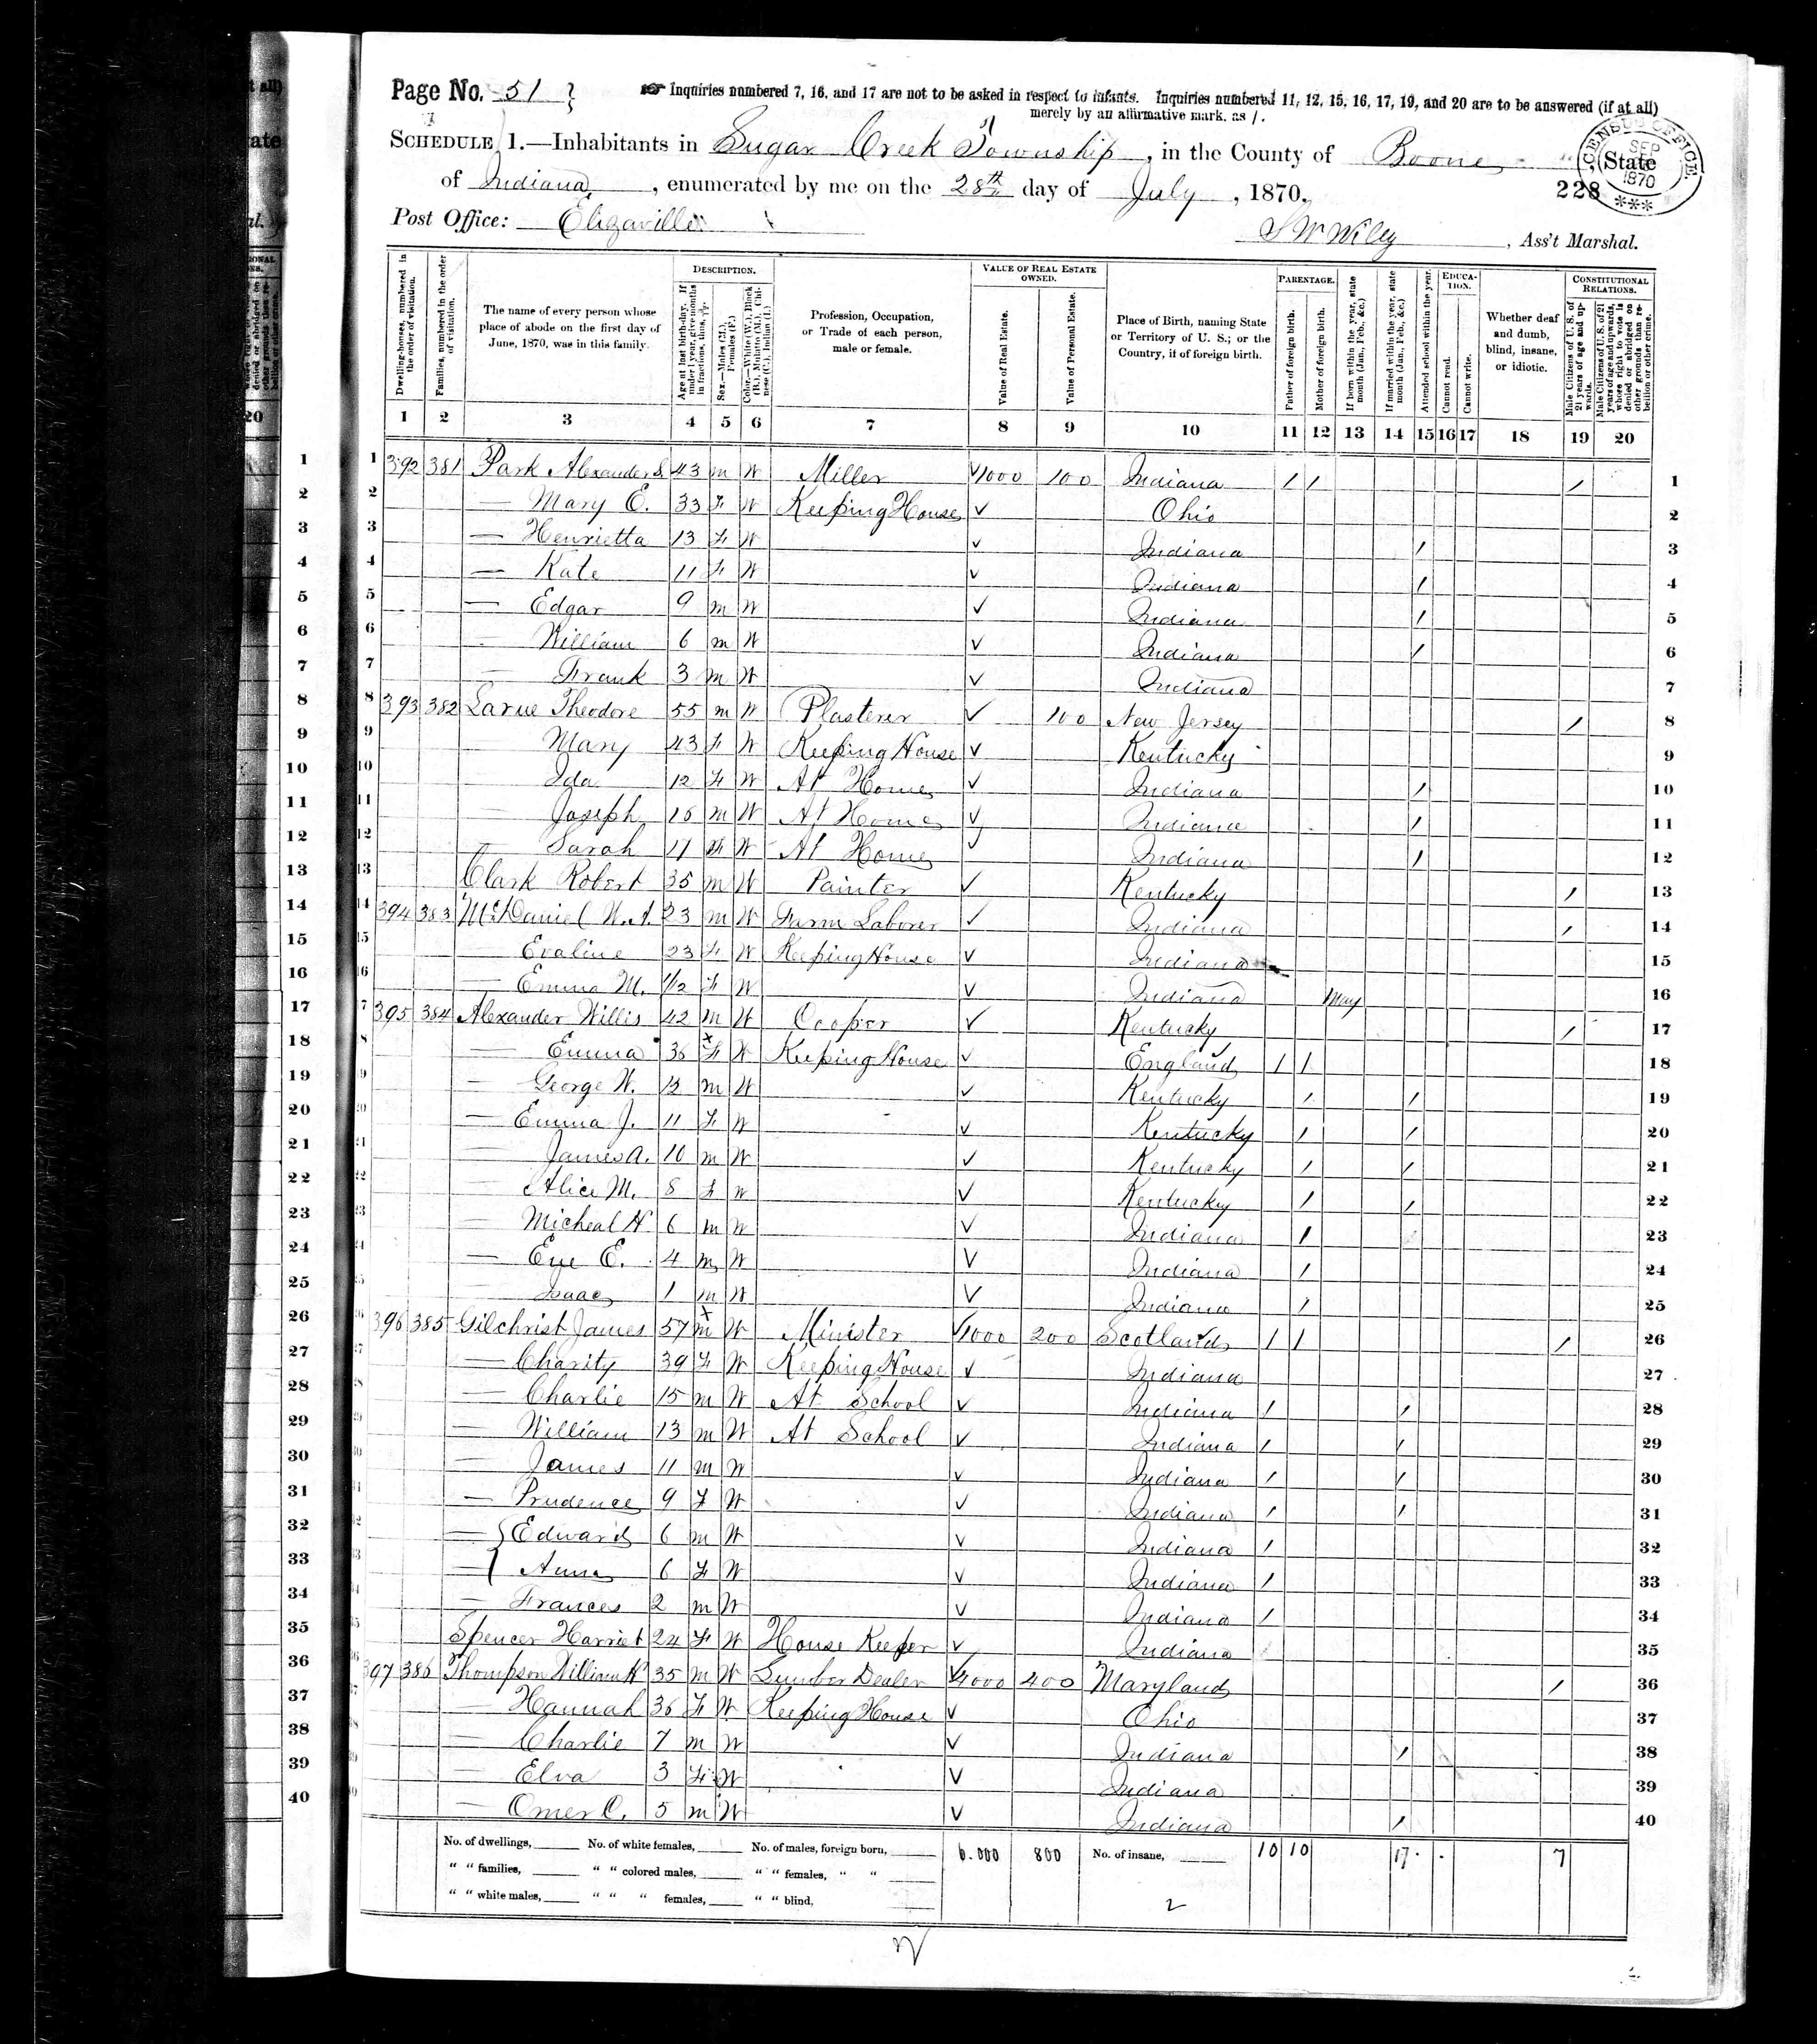 Page No. 51
Inquiries numbered 7, 16, and 17 are not to be asked in respect to infants. Inquiries numbered 11, 12, 15, 16, 17, 19, and 20 are to be answered (if at all)
merely by an affirmative mark, as /.
SCHEDULE 1.—Inhabitants in Sugar Creek Township, in the County of Boone, State
of Indiana, enumerated by me on the 28th day of July, 1870.
228
CENSUS OFFICE. SEP 1870 ***
Post Office: Elizaville
S W Wiley, Ass't Marshal.
Dwelling-houses, numbered in the order of visitation.
Families, numbered in the order of visitation.
The name of every person whose place of abode on the first day of June, 1870, was in this family.
DESCRIPTION.
Age at last birth-day. If under 1 year, give months in fractions, thus, 3/12.
Sex.—Males (M.), Females (F.)
Color.—White (W.), Black (B.), Mulatto (M.), Chinese (C.), Indian (I.)
Profession, Occupation, or Trade of each person, male or female.
VALUE OF REAL ESTATE OWNED.
Value of Real Estate.
Value of Personal Estate.
Place of Birth, naming State or Territory of U. S.; or the Country, if of foreign birth.
PARENTAGE.
Father of foreign birth.
Mother of foreign birth.
If born within the year, state month (Jan., Feb., &c.)
If married within the year, state month (Jan., Feb., &c.)
Attended school within the year.
EDUCATION.
Cannot read.
Cannot write.
Whether deaf and dumb, blind, insane, or idiotic.
CONSTITUTIONAL RELATIONS.
Male Citizens of U. S. of 21 years of age and upwards.
Male Citizens of U. S. of 21 years of age and upwards, whose right to vote is denied or abridged on other grounds than rebellion or other crime.
1 2 3 4 5 6 7 8 9 10 11 12 13 14 15 16 17 18 19 20
1 392 381 Park Alexander S. 43 m W Miller 1000 100 Indiana / / / 1
2 — Mary E. 33 F W Keeping House Ohio 2
3 — Henrietta 13 F W Indiana / 3
4 — Kate 11 F W Indiana / 4
5 — Edgar 9 m W Indiana / 5
6 — William 6 m W Indiana / 6
7 — Frank 3 m W Indiana 7
8 393 382 Larue Theodore 55 m W Plasterer 100 New Jersey / 8
9 — Mary 43 F W Keeping House Kentucky 9
10 — Ida 12 F W At Home Indiana / 10
11 — Joseph m W At Home Indiana / 11
12 — Sarah F W At Home Indiana / 12
13 Clark Robert 35 m W Painter Kentucky / 13
14 394 383 McDaniel W. A. 23 m W Farm Laborer Indiana / 14
15 — Evaline 23 F W Keeping House Indiana 15
16 — Emma M. 1/12 F W Indiana May 16
17 395 384 Alexander Willis 42 m W Cooper Kentucky / 17
18 — Emma 36 F W Keeping House England / / 18
19 — George W. m W Kentucky / / 19
20 — Emma J. 11 F W Kentucky / / 20
21 — James A. 10 m W Kentucky / / 21
22 — Alice M. 8 F W Kentucky / / 22
23 — Micheal H 6 m W Indiana / 23
24 — E. 4 m W Indiana / 24
25 — Isaac 1 m W Indiana / 25
26 396 385 Gilchrist James 57 m W Minister 1000 200 Scotland / / / 26
27 — Charity 39 F W Keeping House Indiana 27
28 — Charlie 15 m W At School Indiana / / 28
29 — William 13 m W At School Indiana / / 29
30 — James 11 m W Indiana / / 30
31 — Prudence 9 F W Indiana / / 31
32 — Edward 6 m W Indiana / 32
33 — Anna 6 F W Indiana / 33
34 — Frances 2 m W Indiana / 34
35 Spencer Harriet 24 F W House Keeper Indiana 35
36 397 386 Thompson William H 35 m W Lumber Dealer 4000 400 Maryland / 36
37 — Hannah 36 F W Keeping House Ohio 37
38 — Charlie 7 m W Indiana / 38
39 — Elva 3 F W Indiana 39
40 — Omer C. 5 m W Indiana / 40
No. of dwellings, No. of white females, No. of males, foreign born, 6.000 800 No. of insane, 10 10 17 7
" " families, " " colored males, " " females, " "
" " white males, " " " females, " " blind, 2